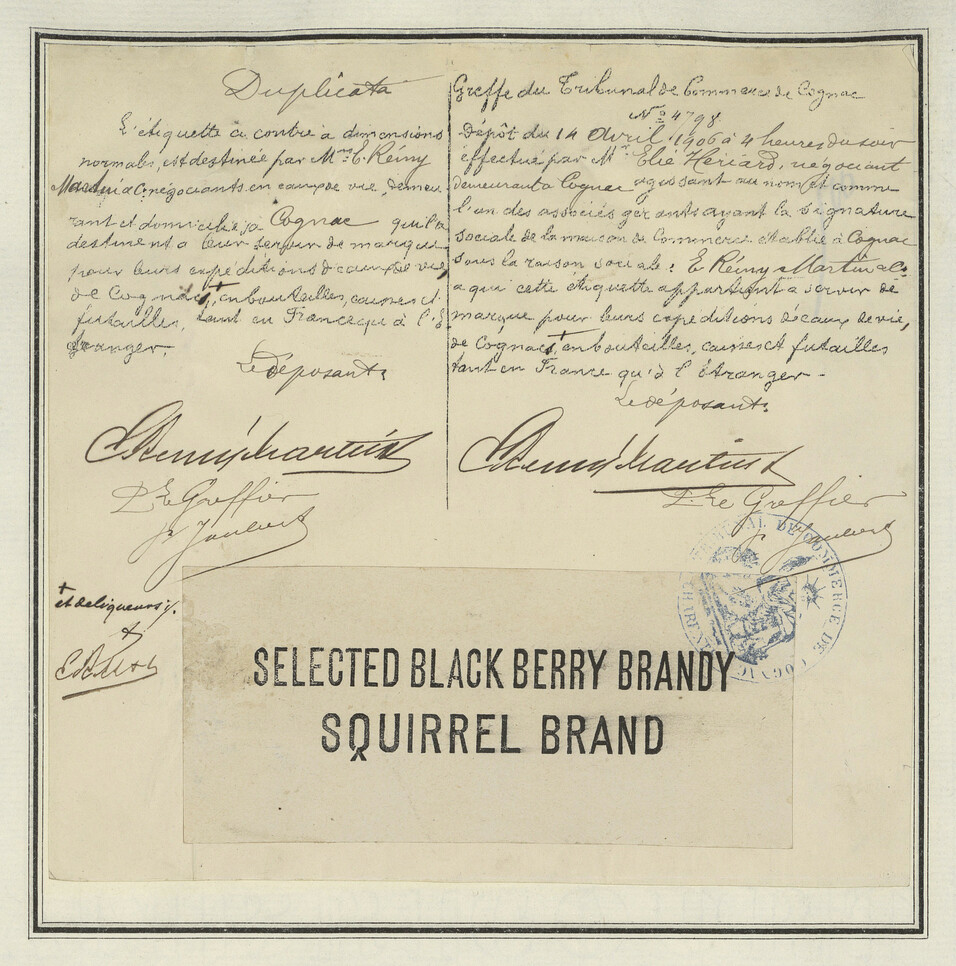 Duplicata
L'étiquette ci contre à dimensions
normales, est destinée par Mrs E. Rémy
Martin & Co négociants en eaux de vie demeu
rant et domiciliés à Cognac qui la
destinent à leur servir de marque
pour leurs expéditions d'eaux de vie,
de Cognac, + en bouteilles, caisses et
futailles, tant en France qu'à l'é
tranger.
Le déposant.
E Remy Martin & Co
P. Le Greffier
Greffe du Tribunal de Commerce de Cognac
No 4798
Dépôt du 14 Avril 1906 à 4 heures du soir
effectué par Mr Elié Heriard, négociant
demeurant à Cognac agissant au nom et comme
l'un des associés gerants ayant la signature
sociale de la maison de Commerce établie à Cognac
sous la raison sociale: E. Rémy Martin & Co
a qui cette étiquette appartient à servir de
marque pour leurs expeditions d'eaux de vie,
de Cognac, + en bouteilles, caisses et futailles
tant en France qu'à l'étranger -
Le déposant.
E Remy Martin & Co
P. Le Greffier
TRIBUNAL DE COMMERCE DE COGNAC
+ et de liqueurs
SELECTED BLACK BERRY BRANDY
SQUIRREL BRAND